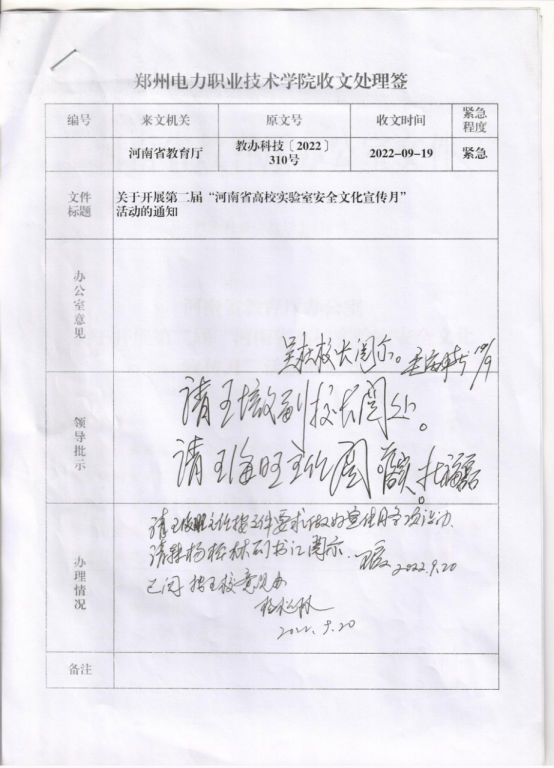 郑州电力职业技术学院收文处理签
编号 来文机关 原文号 收文时间 紧急
程度
河南省教育厅 教办科技〔2022〕
310号 2022-09-19 紧急
文件
标题
关于开展第二届“河南省高校实验室安全文化宣传月”
活动的通知
办公室意见
校长阅示。 19/9
领导批示
请王 副校长阅处。
请王海旺主任阅
办理情况
请王海旺主任按文件要求做好宣传月各项活动
请 杨松林副书记阅示. 2022.9.20
已阅 按王校意见办
杨松林
2022.9.20
备注